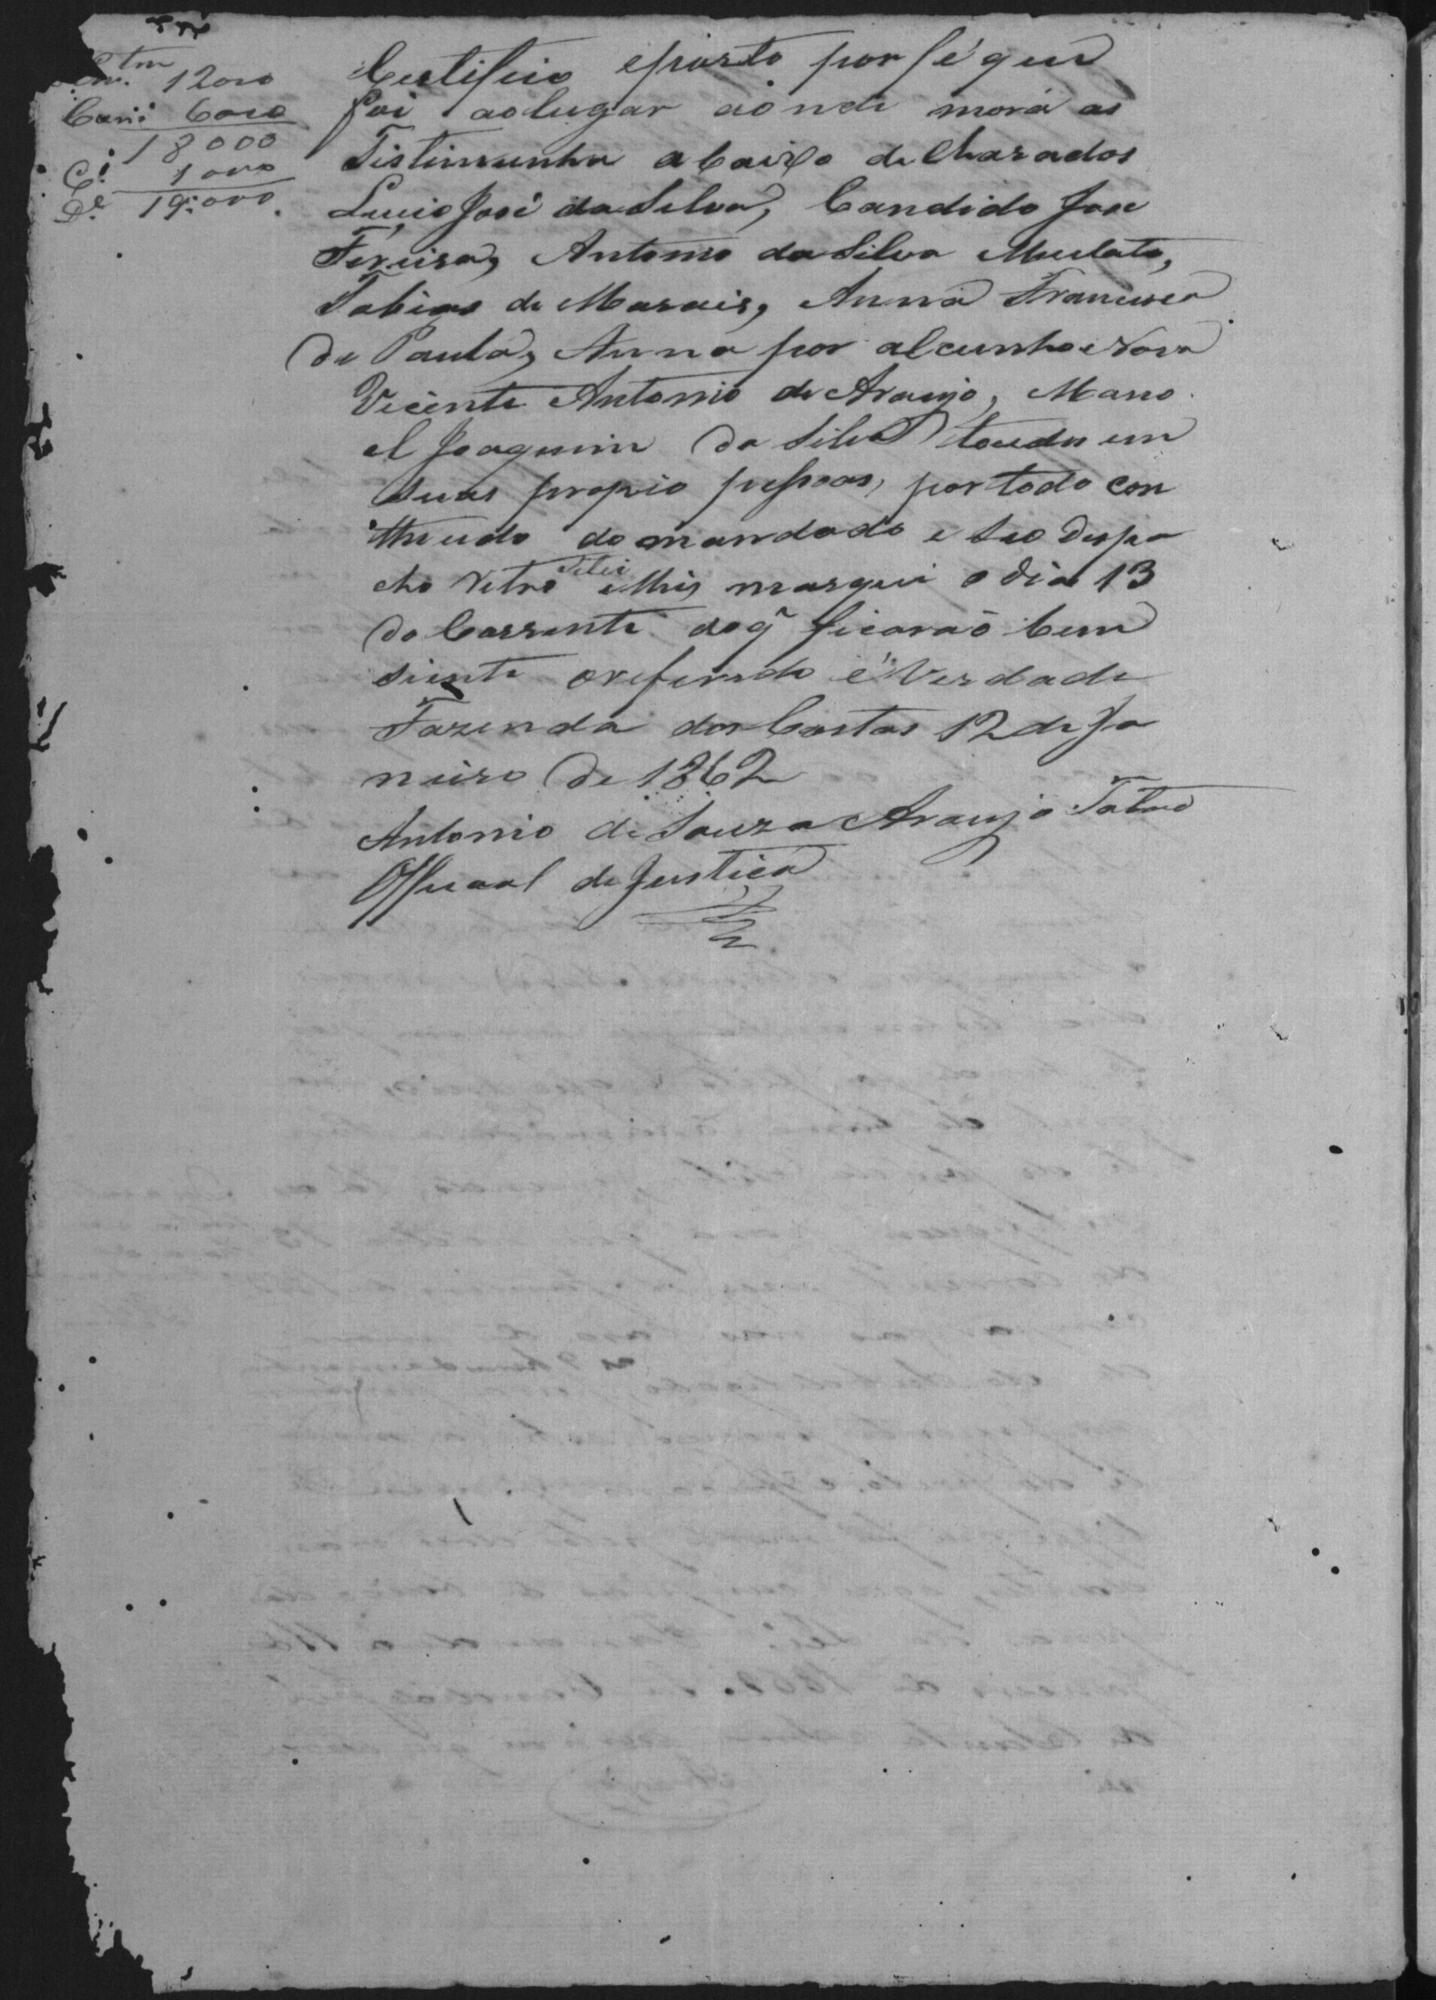 12000
Cam.º 6000
18000
C. 1000
D.e 19:000
Certifico eporto por fé que
foi aolugar aonde mora as
Tistimunha abaixo de Charados
Lucio José da Silva, Candido Jose
Fereira, Antonio da Silva Mulato,
Tobias de Morais, Anna Francisca
de Paula, Anna por alcunha
Vicente Antonio de Araujo, Mano
el Joaquim da Silva toudos em
Suas propio pessoas, portodo con
theudo do mandado e Seo Despa
cho Retro e lhis marquei o dia 13
do Corrente doq̃ ficaraõ bem
siente oreferido é Verdade
Fazenda dos Costas 12 de Ja
neiro de 1862
Antonio de Souza Araujo
Officaal de Justica